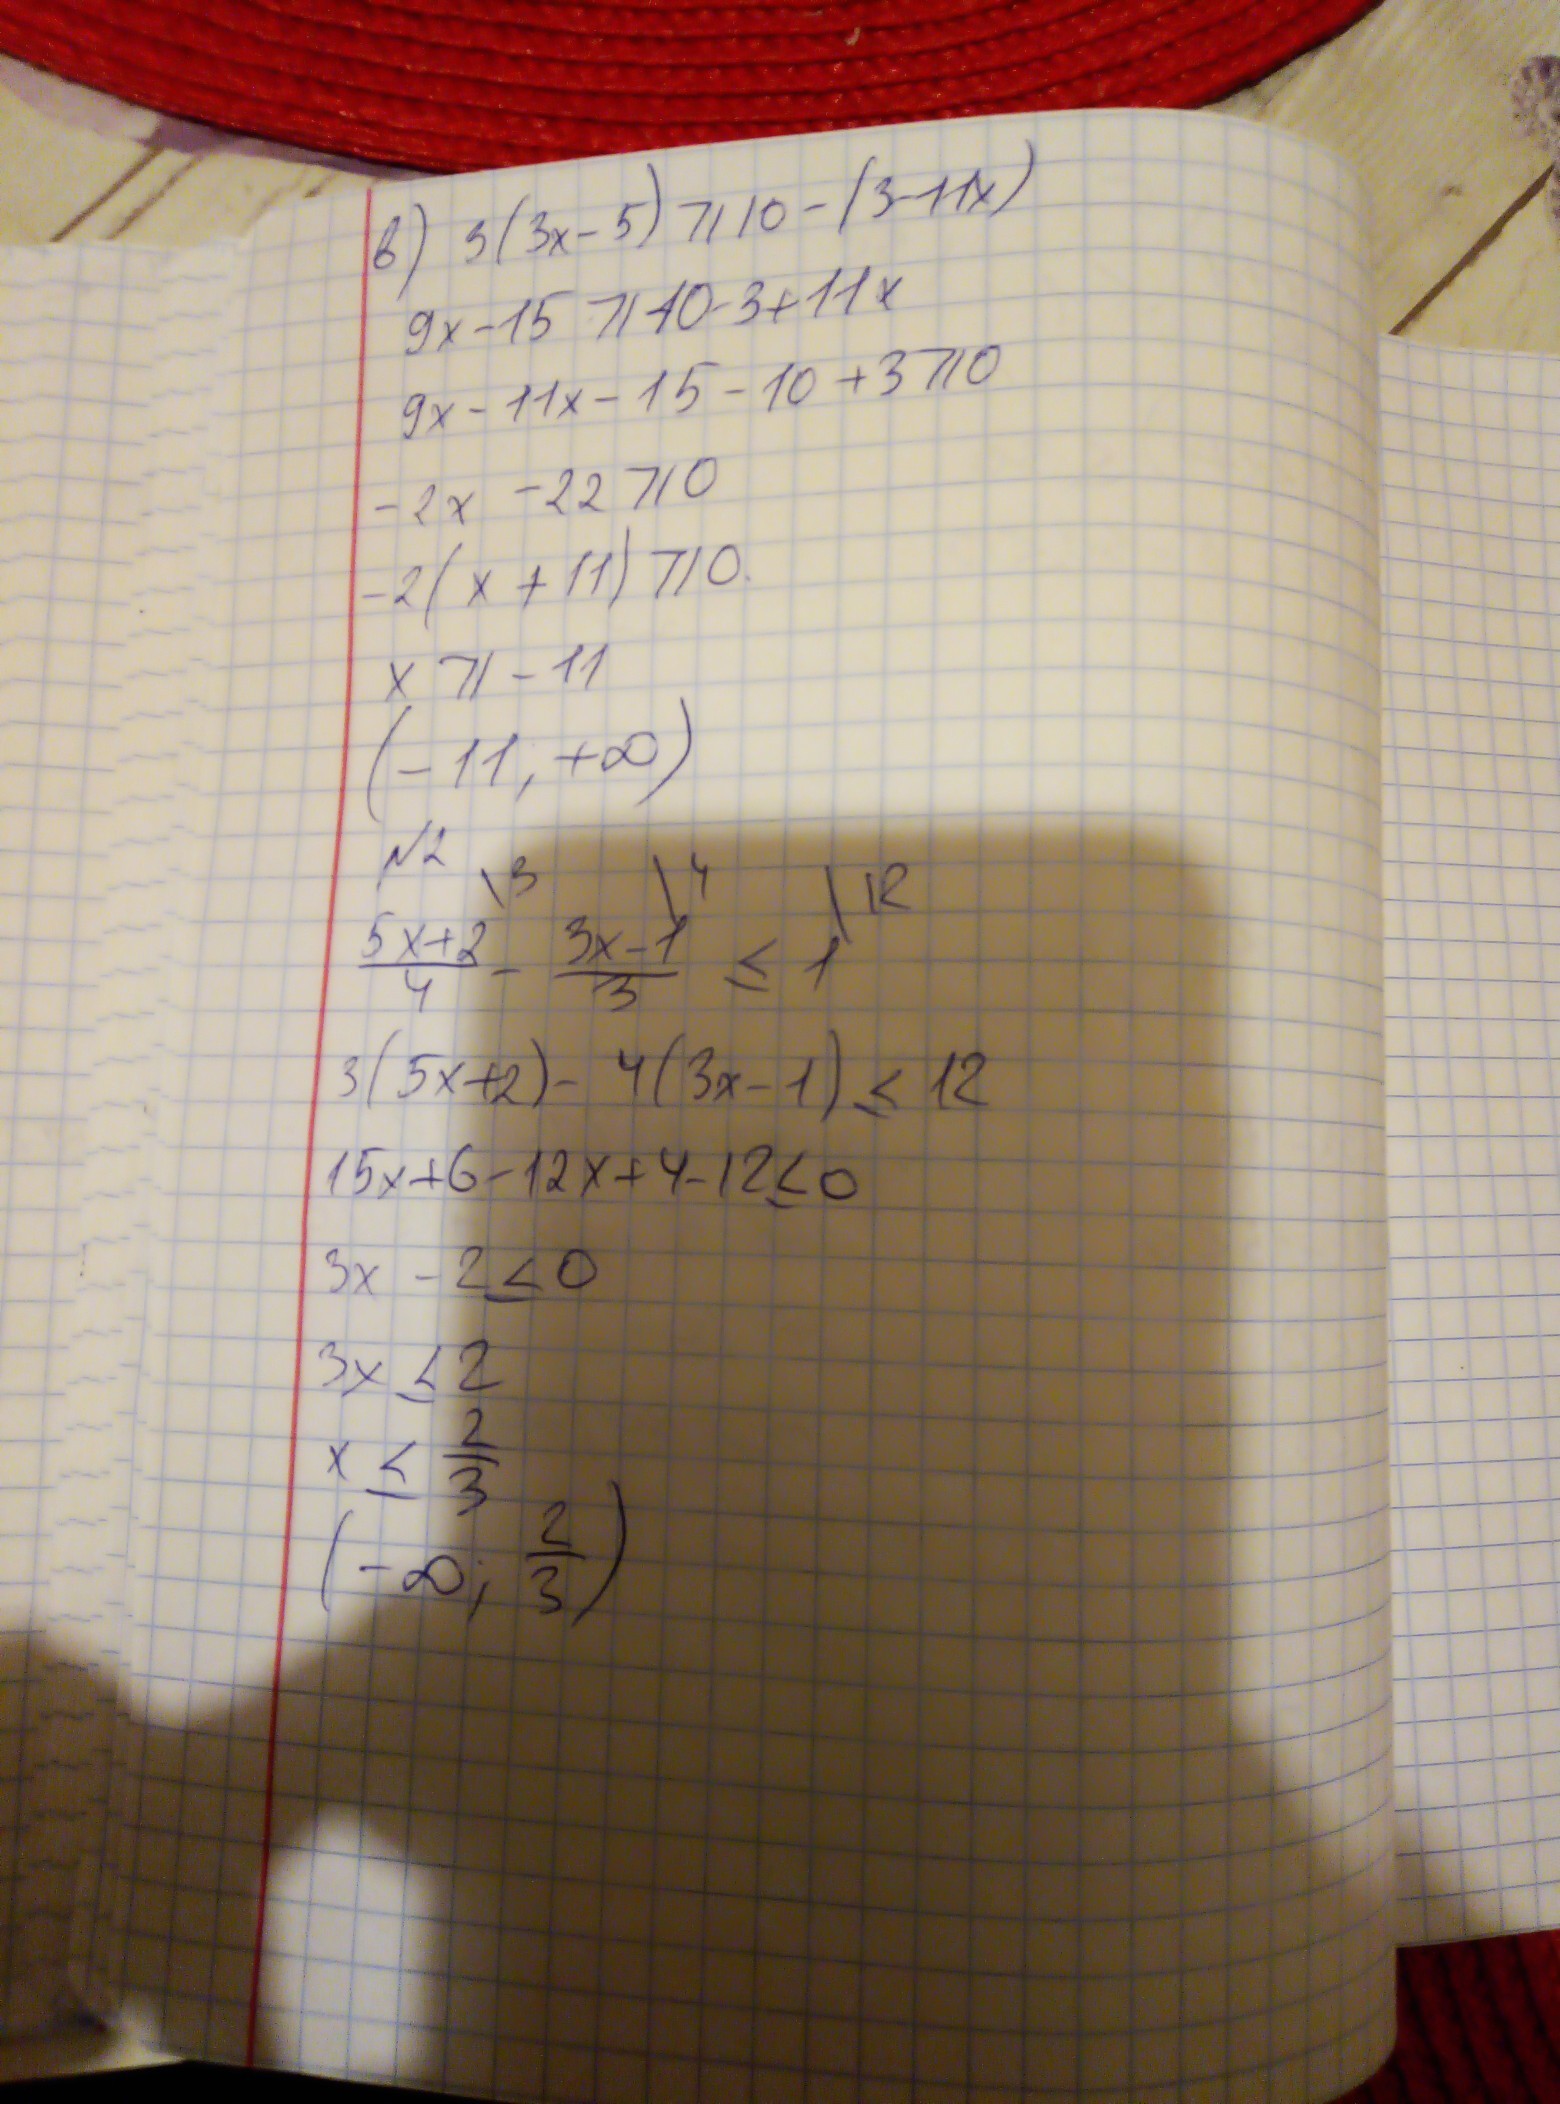 в) 3(3x-5) ⩾ 10-(3-11x)
9x-15 ⩾ 10-3+11x
9x-11x-15-10+3 ⩾ 0
-2x -22 ⩾ 0
-2(x+11) ⩾ 0.
x ⩾ -11
(-11; +∞)
№2
\3 \4 \12
5x+2/4 - 3x-1/3 ≤ 1
3(5x+2)- 4(3x-1) ≤ 12
15x+6-12x+4-12≤0
3x -2≤0
3x ≤2
x ≤ 2/3
(-∞; 2/3)